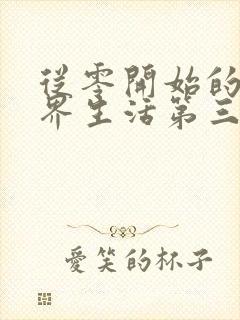 從零開始的
界生活第三
愛笑的杯子